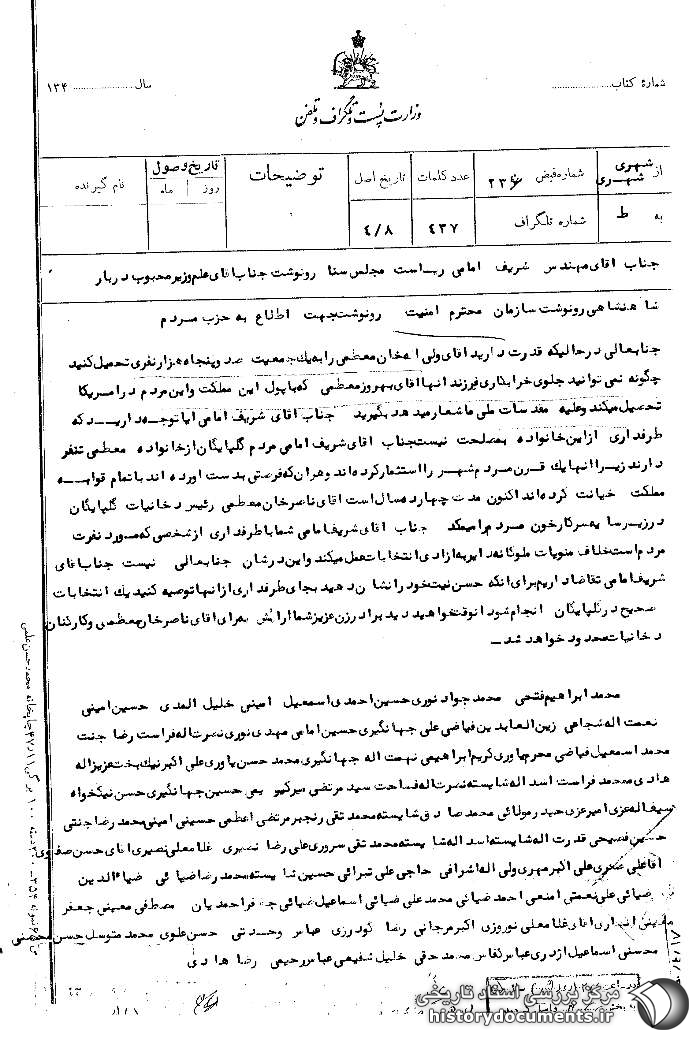 شمارهٔ کتاب
سال ۱۳۴
وزارت پست و تلگراف و تلفن
از شهری شهری
شماره قبض ۲۳۶
عدد کلمات
تاریخ اصل
توضیحات
تاریخ وصول
روز ماه
نام گیرنده
به ط
شماره تلگراف
۴۳۷
۴/۸
جناب آقای مهندس شریف امامی ریاست مجلس سنا رونوشت جناب آقای علم وزیر محبوب دربار
شاهنشاهی رونوشت سازمان محترم امنیت رونوشت جهت اطلاع به حزب مردم
جنابعالی در حالیکه قدرت دارید آقای ولی اله خان معظمی را به یک جمعیت صد و پنجاه هزار نفری تحمیل کنید
چگونه نمی توانید جلوی خرابکاری فرزند آنها آقای بهروز معظمی که با پول این مملکت و این مردم در امریکا
تحصیل میکند و علیه مقدسات ملی ما شعار میدهد بگیرید جناب آقای شریف امامی آیا توجه دارید که
طرفداری از این خانواده بمصلحت نیست جناب آقای شریف امامی مردم گلپایگان از خانواده معظمی تنفر
دارند زیرا آنها یک قرن مردم شهر را استثمار کرده اند و هر آن که فرصتی بدست آورده اند با تمام قوا به
مملکت خیانت کرده اند اکنون مدت چهارده سال است آقای ناصر خان معظمی رئیس دخانیات گلپایگان
در زیر سایه سرکار خون مردم را میمکد جناب آقای شریف امامی شما با طرفداری از شخصی که مورد نفرت
مردم است خلاف منویات ملوکانه دایر به آزادی انتخابات عمل میکند و این در شان جنابعالی نیست جناب آقای
شریف امامی تقاضا داریم برای آنکه حسن نیت خود را نشان دهید بجای طرفداری از آنها توصیه کنید یک انتخابات
صحیح در گلپایگان انجام شود آنوقت خواهید دید برادر زن عزیز شما آرایش به رای آقای ناصر خان معظمی و کارکنان
دخانیات محدود خواهد شد
محمد ابراهیم فتحی محمد جواد نوری حسین احمدی اسمعیل امینی خلیل المدی حسین امینی
نعمت اله شجاعی زین العابدین فیاضی علی جهانگیری حسین امامی مهدی نوری نصرت اله فراست رضا جنت
محمد اسمعیل فیاضی محرم یاوری کریم ابراهیمی نهمت اله جهانگیری محمد حسن یاوری علی اکبر نیک بخت عزیزاله
هادی محمد فراست اسد اله شایسته نصرت اله فصاحت سید مرتضی میرکیو حسین جهانگیری حسن نیکخواه
سیف اله عزی امیر عزی حیدر مولائی محمد صادق شایسته محمد تقی رنجبر مرتضی اعظمی حسینی امینی محمد رضا جنتی
حسین فصیحی قدرت اله شایسته اسد اله شایسته محمد تقی سروری علی رضا نصیری غلامعلی نصیری آقای حسن صفوی
آقا علی صفری علی اکبر مهری ولی اله اشرافی حاجی علی تبرائی حسین شایسته محمد رضا ضیائی ضیاءالدین
ضیائی علی نعمتی امنعی احمد ضیائی محمد علی ضیائی اسماعیل ضیائی جعفر احمدیان مصطفی معینی جعفر
معینی آقای غلامعلی نوروزی اکبر مرجانی رضا گودرزی عباس وحدتی حسن علوی محمد متوسل حسن محسنی
محسنی اسماعیل اژدری عباس محمد حقی خلیل شفیعی عباس رحیمی رضا هادی
مرکز بررسی اسناد تاریخی
historydocuments.ir